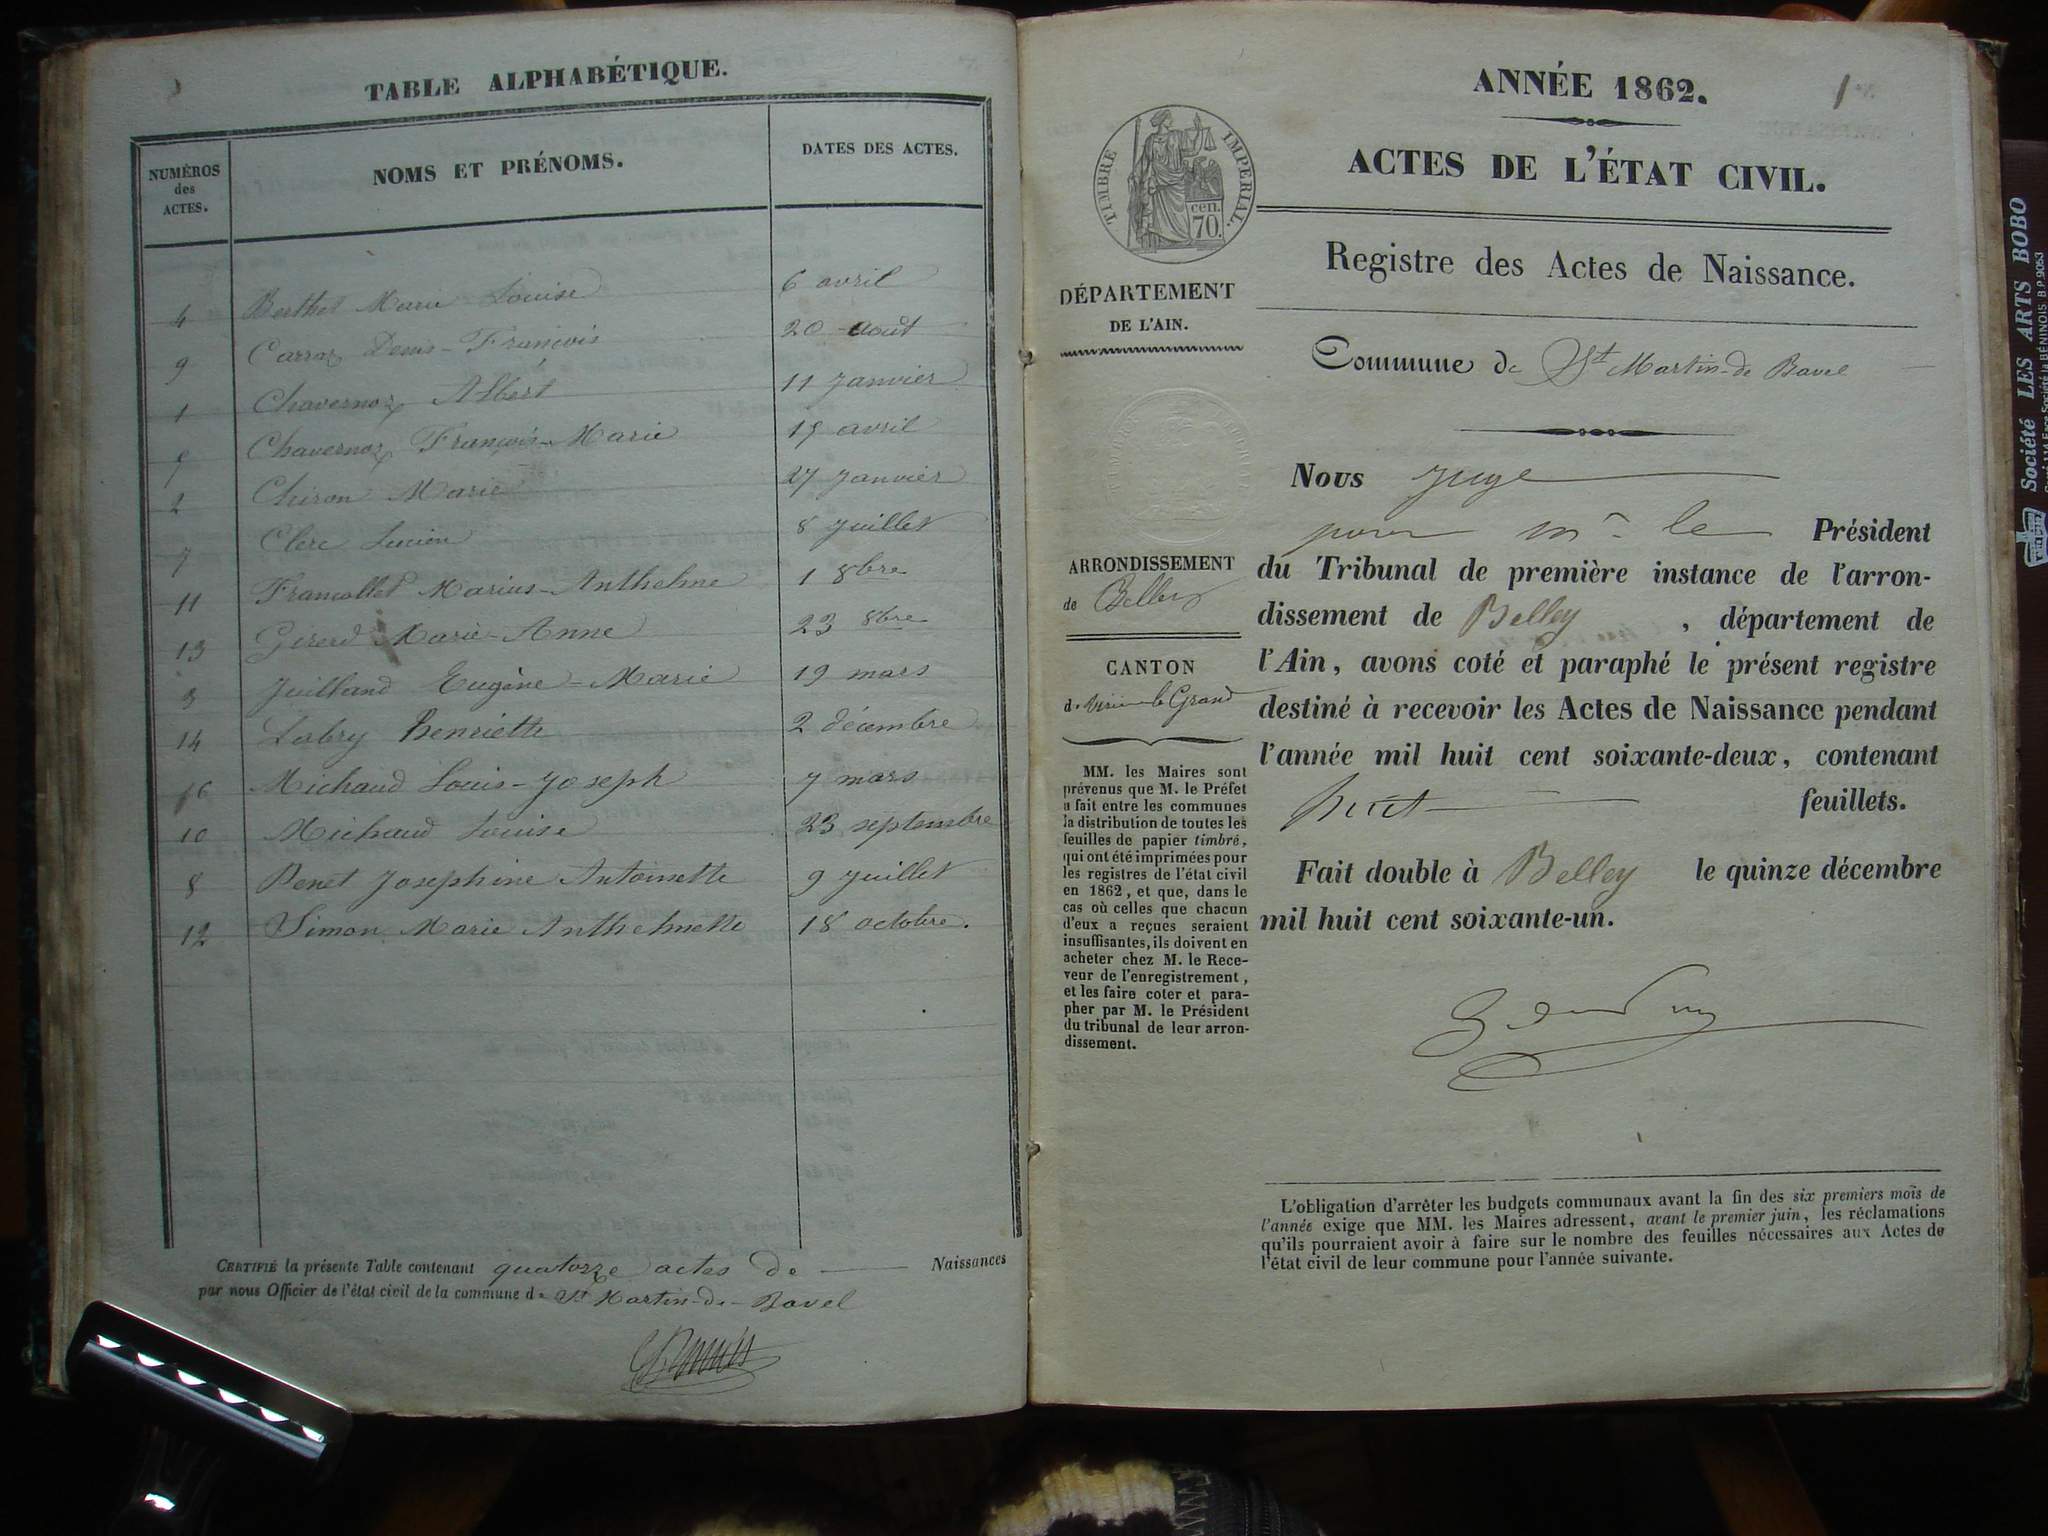 TABLE ALPHABÉTIQUE.
NUMÉROS
des
ACTES.
NOMS ET PRÉNOMS.
DATES DES ACTES.
4 Berthet Marie Louise 6 avril
9 Carraz Denis-François 20 août
1 Chavernoz Albért 11 Janvier
5 Chavernoz François-Marie 15 avril
2 Chiron Marie 27 Janvier
7 Clerc Lucien 8 Juillet
11 Francollet Marius-Anthelme 1 8bre
13 Girerd Marie-Anne 23 8bre
3 Juilland Eugène-Marie 19 mars
14 Labry henriette 2 décembre
Michaud Louis-Joseph 7 mars
10 Michaud Louise 23 septembre
8 Penet Josephine Antoinette 9 Juillet
12 Simon Marie Anthelmette 18 octobre.
CERTIFIÉ la présente Table contenant quatorze actes de Naissances
par nous Officier de l'état civil de la commune de St Martin-de-Bavel
ANNÉE 1862.
1
TIMBRE IMPÉRIAL.
cen.
70.
ACTES DE L'ÉTAT CIVIL.
Registre des Actes de Naissance.
DÉPARTEMENT
DE L'AIN.
Commune de St Martin-de Bavel
Nous Juge
pour mr le Président
ARRONDISSEMENT
de Belley
du Tribunal de première instance de l'arron-
dissement de Belley, département de
l'Ain, avons coté et paraphé le présent registre
destiné à recevoir les Actes de Naissance pendant
l'année mil huit cent soixante-deux, contenant
huit feuillets.
CANTON
de Virieu le Grand
MM. les Maires sont
prévenus que M. le Préfet
a fait entre les communes
la distribution de toutes les
feuilles de papier timbré,
qui ont été imprimées pour
les registres de l'état civil
en 1862, et que, dans le
cas où celles que chacun
d'eux a reçues seraient
insuffisantes, ils doivent en
acheter chez M. le Rece-
veur de l'enregistrement,
et les faire coter et para-
pher par M. le Président
du tribunal de leur arron-
dissement.
Fait double à Belley le quinze décembre
mil huit cent soixante-un.
L'obligation d'arrêter les budgets communaux avant la fin des six premiers mois de
l'année exige que MM. les Maires adressent, avant le premier juin, les réclamations
qu'ils pourraient avoir à faire sur le nombre des feuilles nécessaires aux Actes de
l'état civil de leur commune pour l'année suivante.
Société LES ARTS BOBO